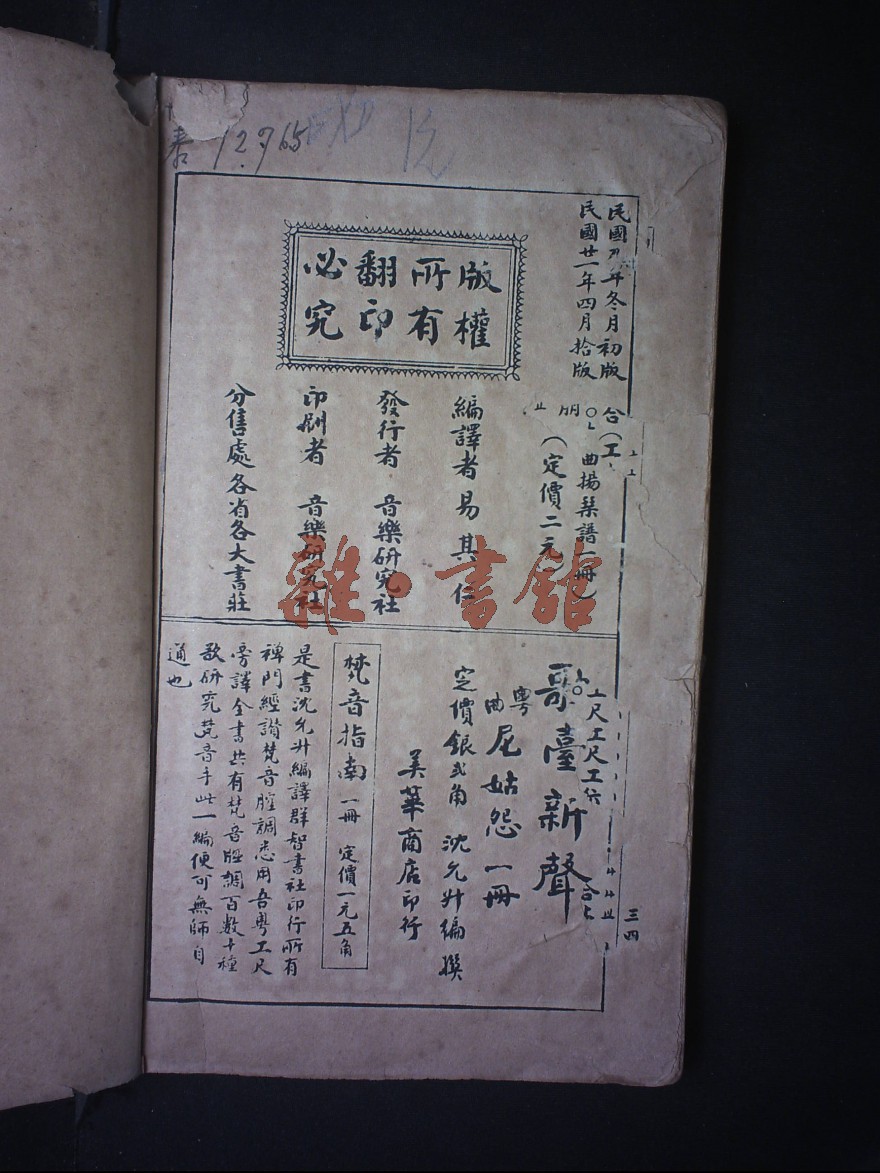 12.765
民國年冬月初版
民國廿一年四月拾版
版權所有
翻印必究
合(工
曲揚琹譜一冊)
(定價二元
編譯者易其仁
發行者 音樂研究社
印刷者 音樂研究社
分售處各省各大書莊
工尺工尺工
歌臺新聲
粵曲尼姑怨一冊
定價銀弍角 沈允升編撰
美華商店印行
梵音指南 一冊 定價一元五角
是書沈允升編譯群智書社印行所有
禅門經讃梵音腔調悉用吾粵工尺
旁譯全書共有梵音腔調百數十種
欲研究梵音手此一編便可無師自
通也
三四
雜·書館